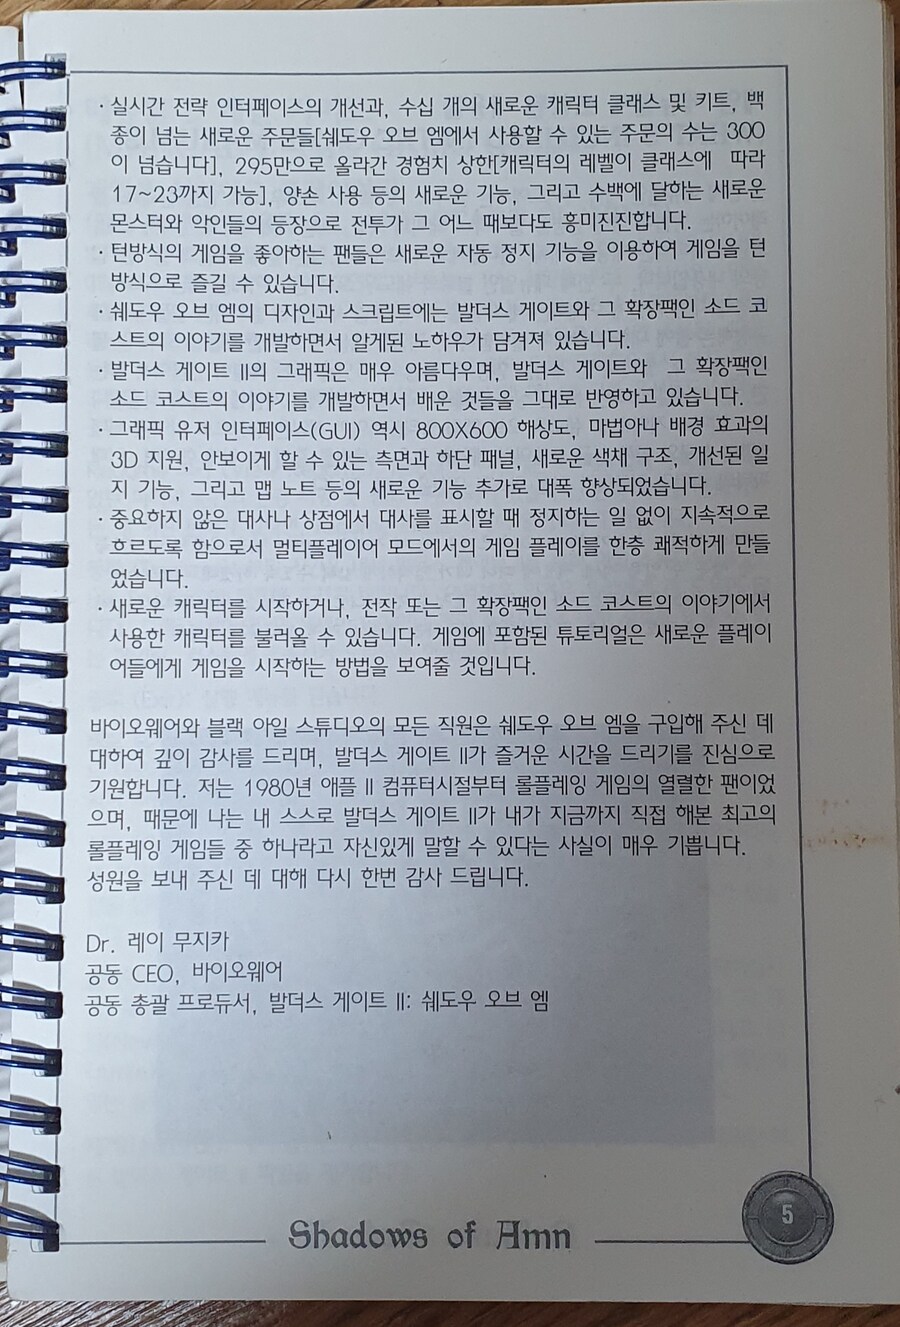 · 실시간 전략 인터페이스의 개선과, 수십 개의 새로운 캐릭터 클래스 및 키트, 백
종이 넘는 새로운 주문들[쉐도우 오브 엠에서 사용할 수 있는 주문의 수는 300
이 넘습니다], 295만으로 올라간 경험치 상한[캐릭터의 레벨이 클래스에 따라
17~23까지 가능], 양손 사용 등의 새로운 기능, 그리고 수백에 달하는 새로운
몬스터와 악인들의 등장으로 전투가 그 어느 때보다도 흥미진진합니다.
· 턴방식의 게임을 좋아하는 팬들은 새로운 자동 정지 기능을 이용하여 게임을 턴
방식으로 즐길 수 있습니다.
· 쉐도우 오브 엠의 디자인과 스크립트에는 발더스 게이트와 그 확장팩인 소드 코
스트의 이야기를 개발하면서 알게된 노하우가 담겨져 있습니다.
· 발더스 게이트 II의 그래픽은 매우 아름다우며, 발더스 게이트와 그 확장팩인
소드 코스트의 이야기를 개발하면서 배운 것들을 그대로 반영하고 있습니다.
· 그래픽 유저 인터페이스(GUI) 역시 800X600 해상도, 마법이나 배경 효과의
3D 지원, 안보이게 할 수 있는 측면과 하단 패널, 새로운 색채 구조, 개선된 일
지 기능, 그리고 맵 노트 등의 새로운 기능 추가로 대폭 향상되었습니다.
· 중요하지 않은 대사나 상점에서 대사를 표시할 때 정지하는 일 없이 지속적으로
흐르도록 함으로서 멀티플레이어 모드에서의 게임 플레이를 한층 쾌적하게 만들
었습니다.
· 새로운 캐릭터를 시작하거나, 전작 또는 그 확장팩인 소드 코스트의 이야기에서
사용한 캐릭터를 불러올 수 있습니다. 게임에 포함된 튜토리얼은 새로운 플레이
어들에게 게임을 시작하는 방법을 보여줄 것입니다.
바이오웨어와 블랙 아일 스튜디오의 모든 직원은 쉐도우 오브 엠을 구입해 주신 데
대하여 깊이 감사를 드리며, 발더스 게이트 II가 즐거운 시간을 드리기를 진심으로
기원합니다. 저는 1980년 애플 II 컴퓨터시절부터 롤플레잉 게임의 열렬한 팬이었
으며, 때문에 나는 내 스스로 발더스 게이트 II가 내가 지금까지 직접 해본 최고의
롤플레잉 게임들 중 하나라고 자신있게 말할 수 있다는 사실이 매우 기쁩니다.
성원을 보내 주신 데 대해 다시 한번 감사 드립니다.
Dr. 레이 무지카
공동 CEO, 바이오웨어
공동 총괄 프로듀서, 발더스 게이트 II: 쉐도우 오브 엠
Shadows of Amn
5